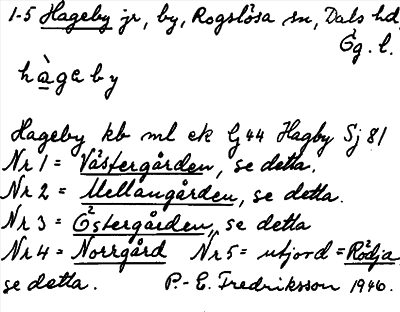 1-5 Hageby jr, by, Rogslösa sn, Dals hd,
Ög. l.
hàgeby
Hageby kb ml ek G 44 Hagby Sj 81
Nr 1 = Västergården, se detta.
Nr 2 = Mellangården, se detta.
Nr 3 = Östergården, se detta
Nr 4 = Norrgård Nr 5 = utjord = Rödja
se detta. P.-E. Fredriksson 1946.